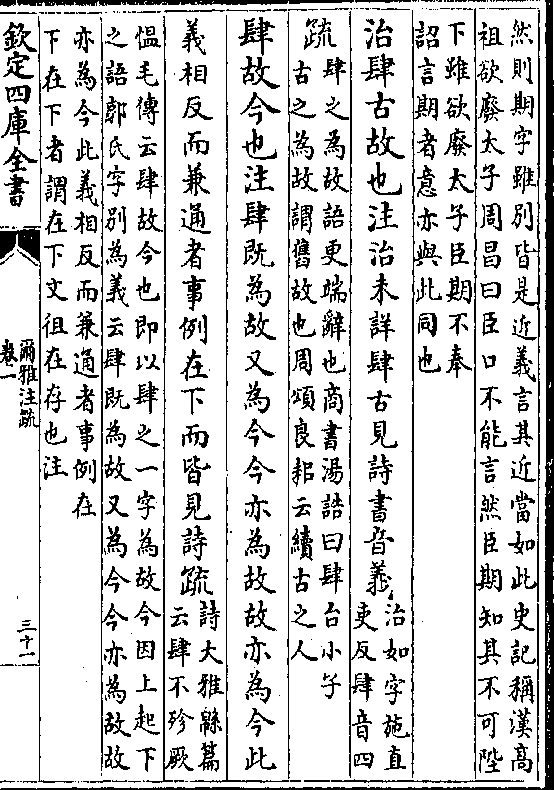 然則期字雖别皆是近義言其近當如此史記稱漢高
祖欲廢太子周昌曰臣口不能言然臣期知其不可陛
下雖欲廢太子臣期不奉
詔言期者意亦與此同也
治肆古故也注治未詳肆古見詩書音義
治如字施直
吏反肆音四
疏
肆之為故語更端辭也商書湯誥曰肆台小子
古之為故謂舊故也周頌良耜云續古之人
肆故今也注肆既為故又為今今亦為故故亦為今此
義相反而兼通者事例在下而皆見詩疏
詩大雅緜篇
云肆不殄厥
愠毛傳云肆故今也即以肆之一字為故今因上起下
之語郭氏字别為義云肆既為故又為今今亦為故故
亦為今此義相反而兼通者事例在
下在下者謂在下文徂在存也注
欽定四庫全書
爾雅注疏
卷一
三十一